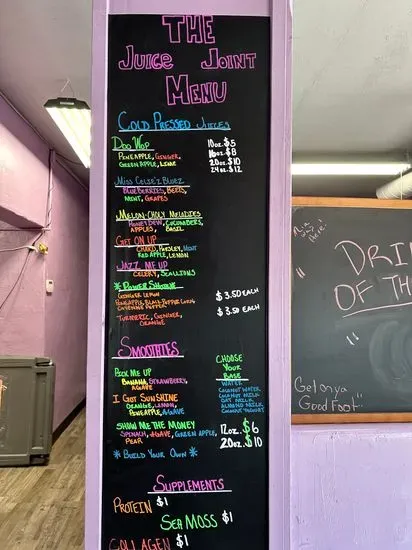 THE
JUICE JOINT
MENU
COLD PRESSED JUICES
DOO WOP
PINEAPPLE, GINGER,
GREEN APPLE, LIME
10oz. $5
16oz. $8
20oz. $10
24oz. $12
MISS CELIE'Z BLUEZ
BLUEBERRIES, BEETS,
MINT, GRAPES
MELON-CHOLY MELODIES
HONEYDEW, CUCUMBERS,
APPLES, BASIL
GET ON UP
CHARD, PARSLEY, MINT
RED APPLE, LEMON
JAZZ ME UP
CELERY, SCALLIONS
*POWER SHOTS*
GINGER LEMON
PINEAPPLE, BLACK PEPPER CORN
CAYENNE PEPPER
$3.50 EACH
TURMERIC, GINGER,
ORANGE
$3.50 EACH
SMOOTHIES
PICK ME UP
BANANA, STRAWBERRY,
AGAVE
I GOT SUNSHINE
ORANGE, LEMON,
PINEAPPLE, AGAVE
SHOW ME THE MONEY
SPINACH, AGAVE, GREEN APPLE,
PEAR
* BUILD YOUR OWN *
CHOOSE
YOUR
BASE
WATER
COCONUT WATER
COCONUT MILK
OAT MILK
ALMOND MILK
COCONUT YOGURT
12oz. $6
20oz. $10
SUPPLEMENTS
PROTEIN $1
SEA MOSS $1
COLLAGEN $1
here!
"DRI
OF TH
"
Get onya
Good Foot"